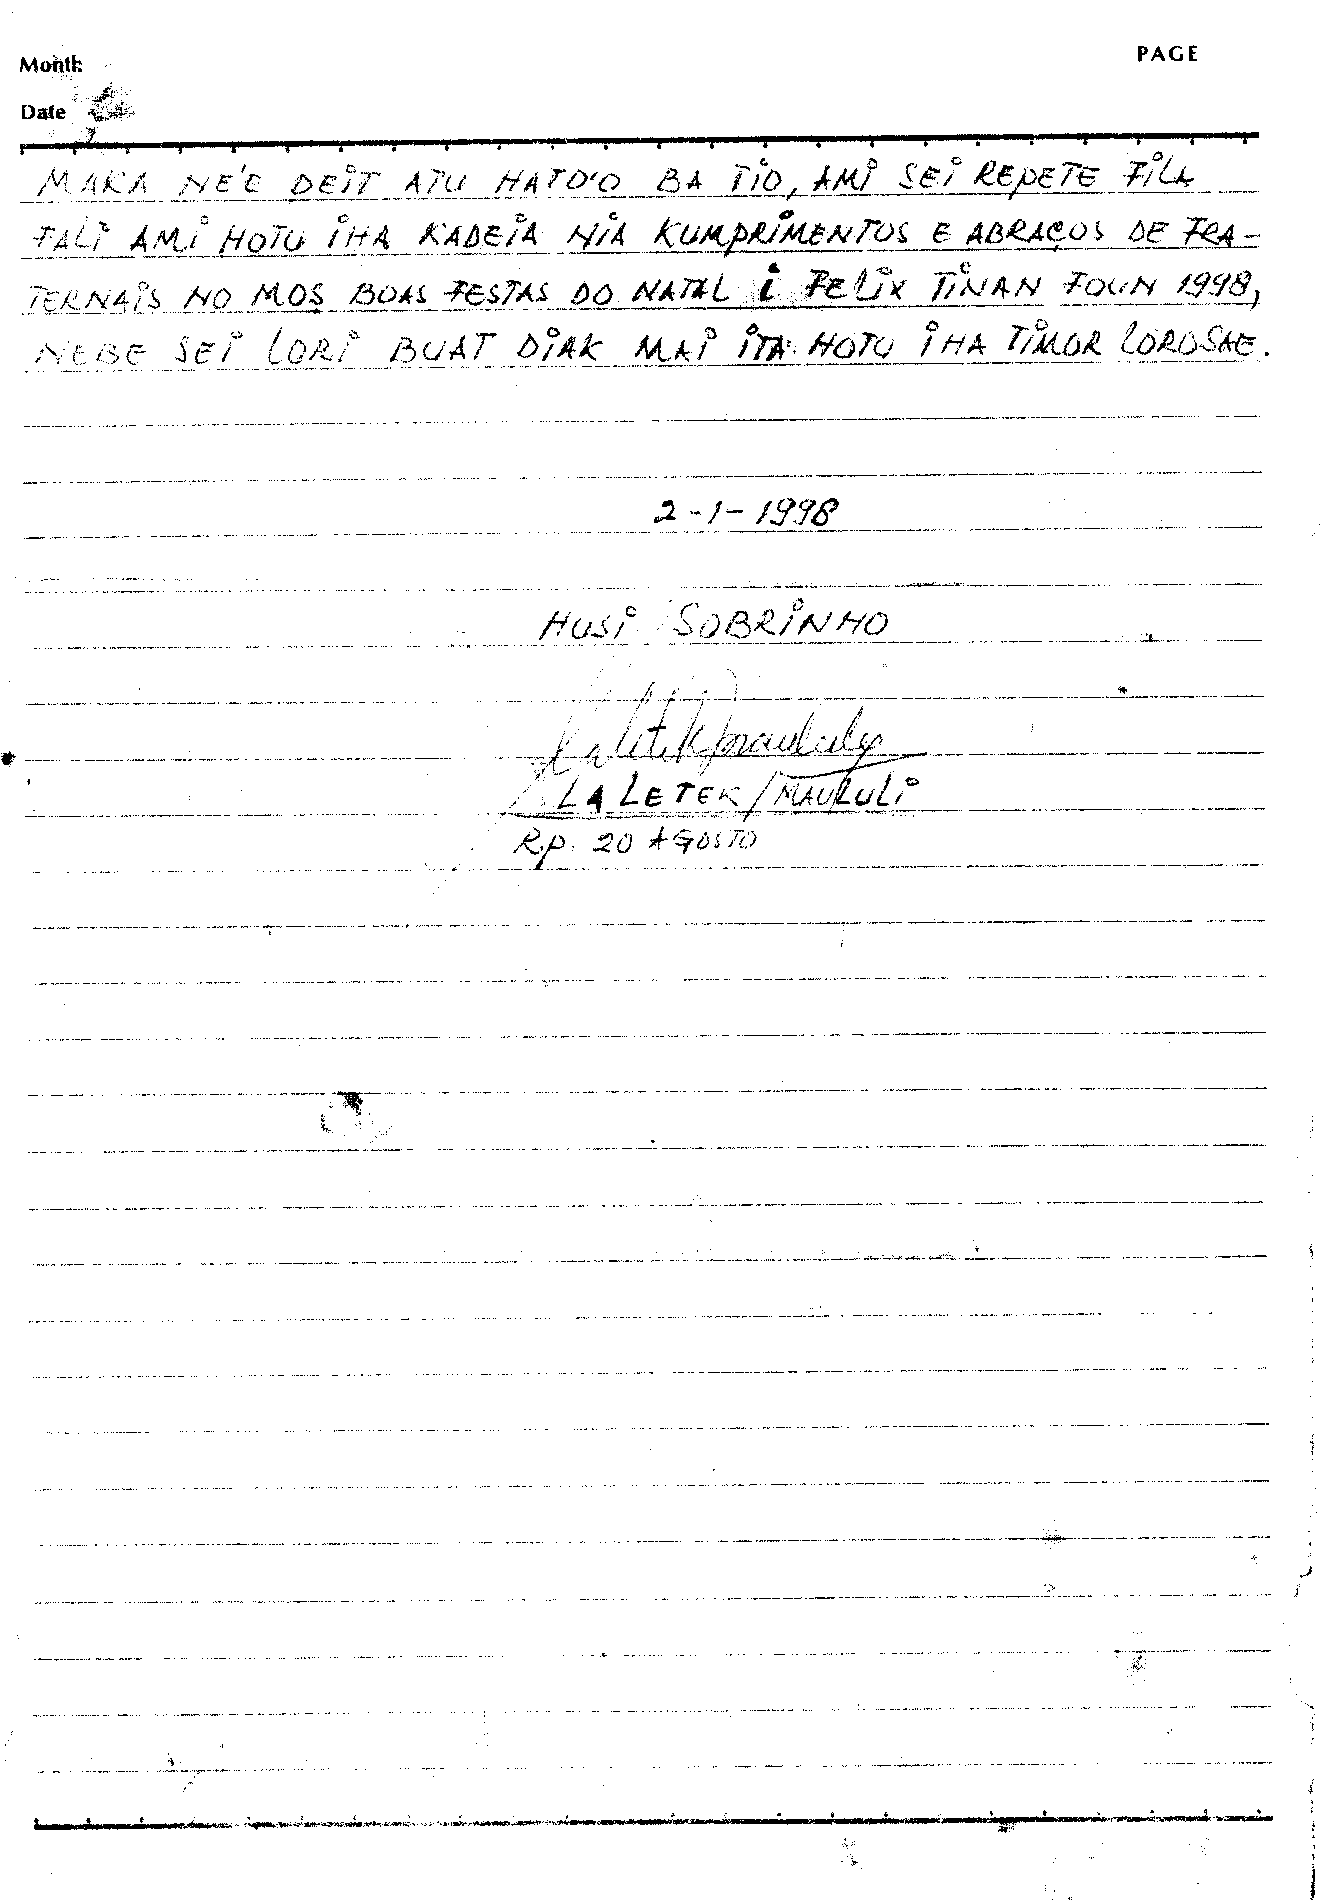 Month
PAGE
Date
MAKA NE'E DEIT ATU HATO'O BA TIO, AMI SEI REPETE FILA
FALI AMI HOTU IHA KADEIA NIA KUMPRIMENTOS E ABRAÇOS DE FRA-
TERNAIS NO MOS BOAS FESTAS DO NATAL i FELIX TINAN FOUN 1998,
NEBE SEI LORI BUAT DIAK MAI ITA HOTU IHA TIMOR LOROSAE.
2-1-1998
HUSI SOBRINHO
LALETEK/MAULULI
Rp. 20 AGOSTO